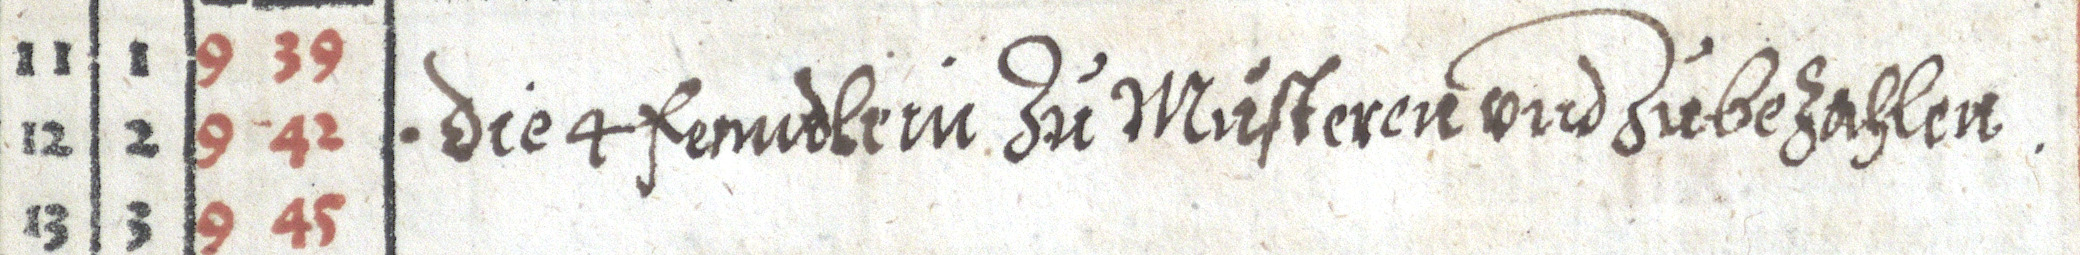 11 1 9 39
12 2 9 42 . die 4 fenndlein Zu Musteren vnd Zubezahlen .
13 3 9 45